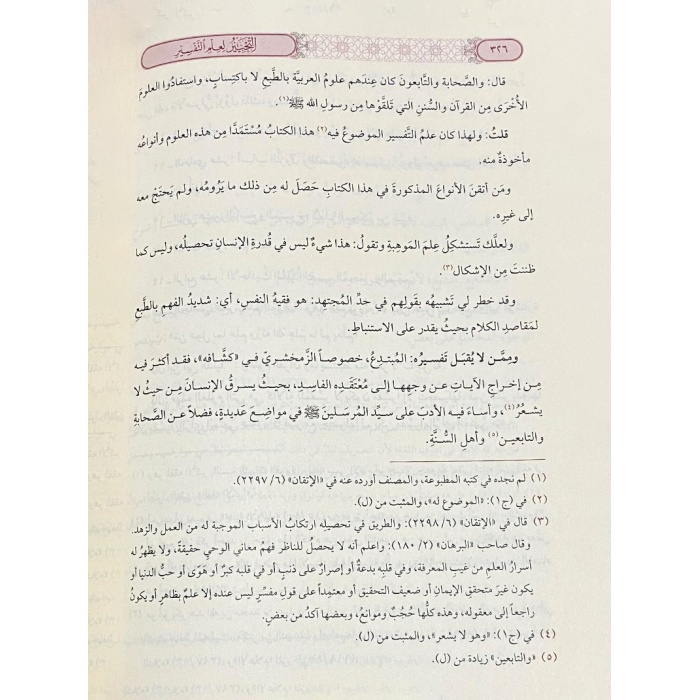 ٣٢٦
التحبير لعلم التفسير
قال: والصَّحابة والتَّابعونَ كان عِندَهم علومُ العربيَّة بالطَّبعِ لا باكتِسابٍ، واستفادُوا العلومَ
الأُخْرَى مِن القرآن والسُّننِ التي تَلقَّوْها مِن رسولِ الله ﷺ(١).
قلتُ: ولهذا كان علمُ التَّفسير الموضوعُ فيه(٢) هذا الكتابُ مُسْتَمَدًّا مِن هذه العلوم وأنواعُه
مأخوذةٌ منه.
ومَن أتقنَ الأنواعَ المذكورةَ في هذا الكتابِ حَصَلَ له مِن ذلك ما يَرُومُه، ولم يَحتَجْ معه
إلى غيرِه.
ولعلَّك تَستشكِلُ علمَ المَوهِبةِ وتقولُ: هذا شيءٌ ليس في قُدرةِ الإنسانِ تحصيلُه، وليس كما
ظننتَ مِن الإشكال(٣).
وقد خطر لي تَشبيهُه بقَولِهم في حدِّ المُجتهِد: هو فقيهُ النفسِ، أي: شديدُ الفهمِ بالطَّبعِ
لمَقاصدِ الكلام بحيثُ يقدر على الاستنباطِ.
ومِمَّن لا يُقبَل تَفسيرُه: المُبتدِعُ، خصوصاً الزَّمخشريَّ في «كشَّافه»، فقد أكثرَ فيه
مِن إخراجِ الآياتِ عن وجهِها إلى مُعتَقَدِه الفاسِدِ، بحيثُ يسرقُ الإنسانَ مِن حيثُ لا
يشعُرُ(٤)، وأساءَ فيه الأدبَ على سيِّد المُرسَلينَ ﷺ في مواضِعَ عديدةٍ، فضلاً عن الصَّحابةِ
والتابعين(٥) وأهلِ السُّنَّةِ.
(١) لم نجده في كتبه المطبوعة، والمصنف أورده عنه في «الإتقان» (٦/ ٢٢٩٧).
(٢) في (ج١): «الموضوع له»، والمثبت من (ل).
(٣) قال في «الإتقان» (٦/ ٢٢٩٨): والطريق في تحصيله ارتكابُ الأسباب الموجبة له من العمل والزهد.
وقال صاحب «البرهان» (٢/ ١٨٠): واعلم أنه لا يحصلُ للناظر فهمُ معاني الوحي حقيقةً، ولا يظهرُ له
أسرارُ العلمِ من غيبِ المعرفة، وفي قلبِه بدعةٌ أو إصرارٌ على ذنبٍ أو في قلبه كبرٌ أو هَوًى أو حبُّ الدنيا أو
يكون غيرَ متحقِق الإيمانِ أو ضعيف التحقيقِ أو معتمِداً على قولِ مفسِّرٍ ليس عنده إلا علمٌ بظاهرٍ أو يكونُ
راجعاً إلى معقولِه، وهذه كلُّها حُجُبٌ وموانعُ، وبعضها آكدُ من بعضٍ.
(٤) في (ج١): «وهو لا يشعر»، والمثبت من (ل).
(٥) «والتابعين» زيادة من (ل).